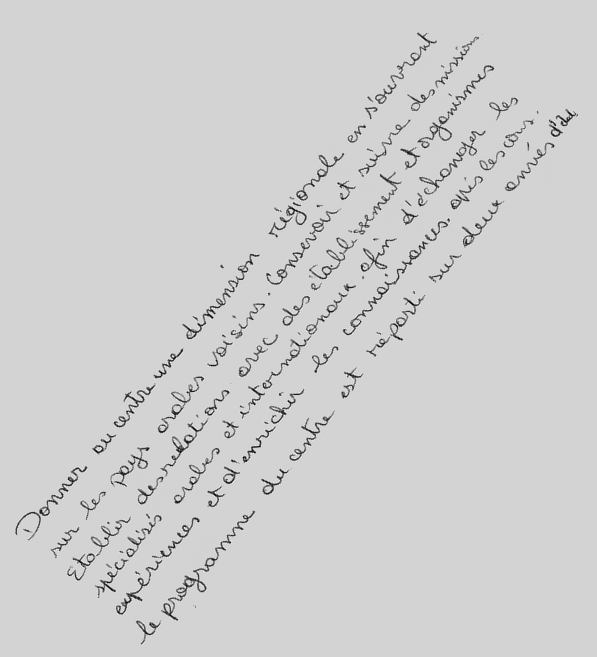 Donner au centre une dimension régionale en s'ouvrant
sur les pays arabes voisins. Conservoir et suivre des missions
Etablir des relations avec des établissement et organismes
spécialisés arabes et internationaux. afin d'échanger les
expériences et d'enrichir les connaissances. après les cours.
le programme du centre est réparti sur deux années